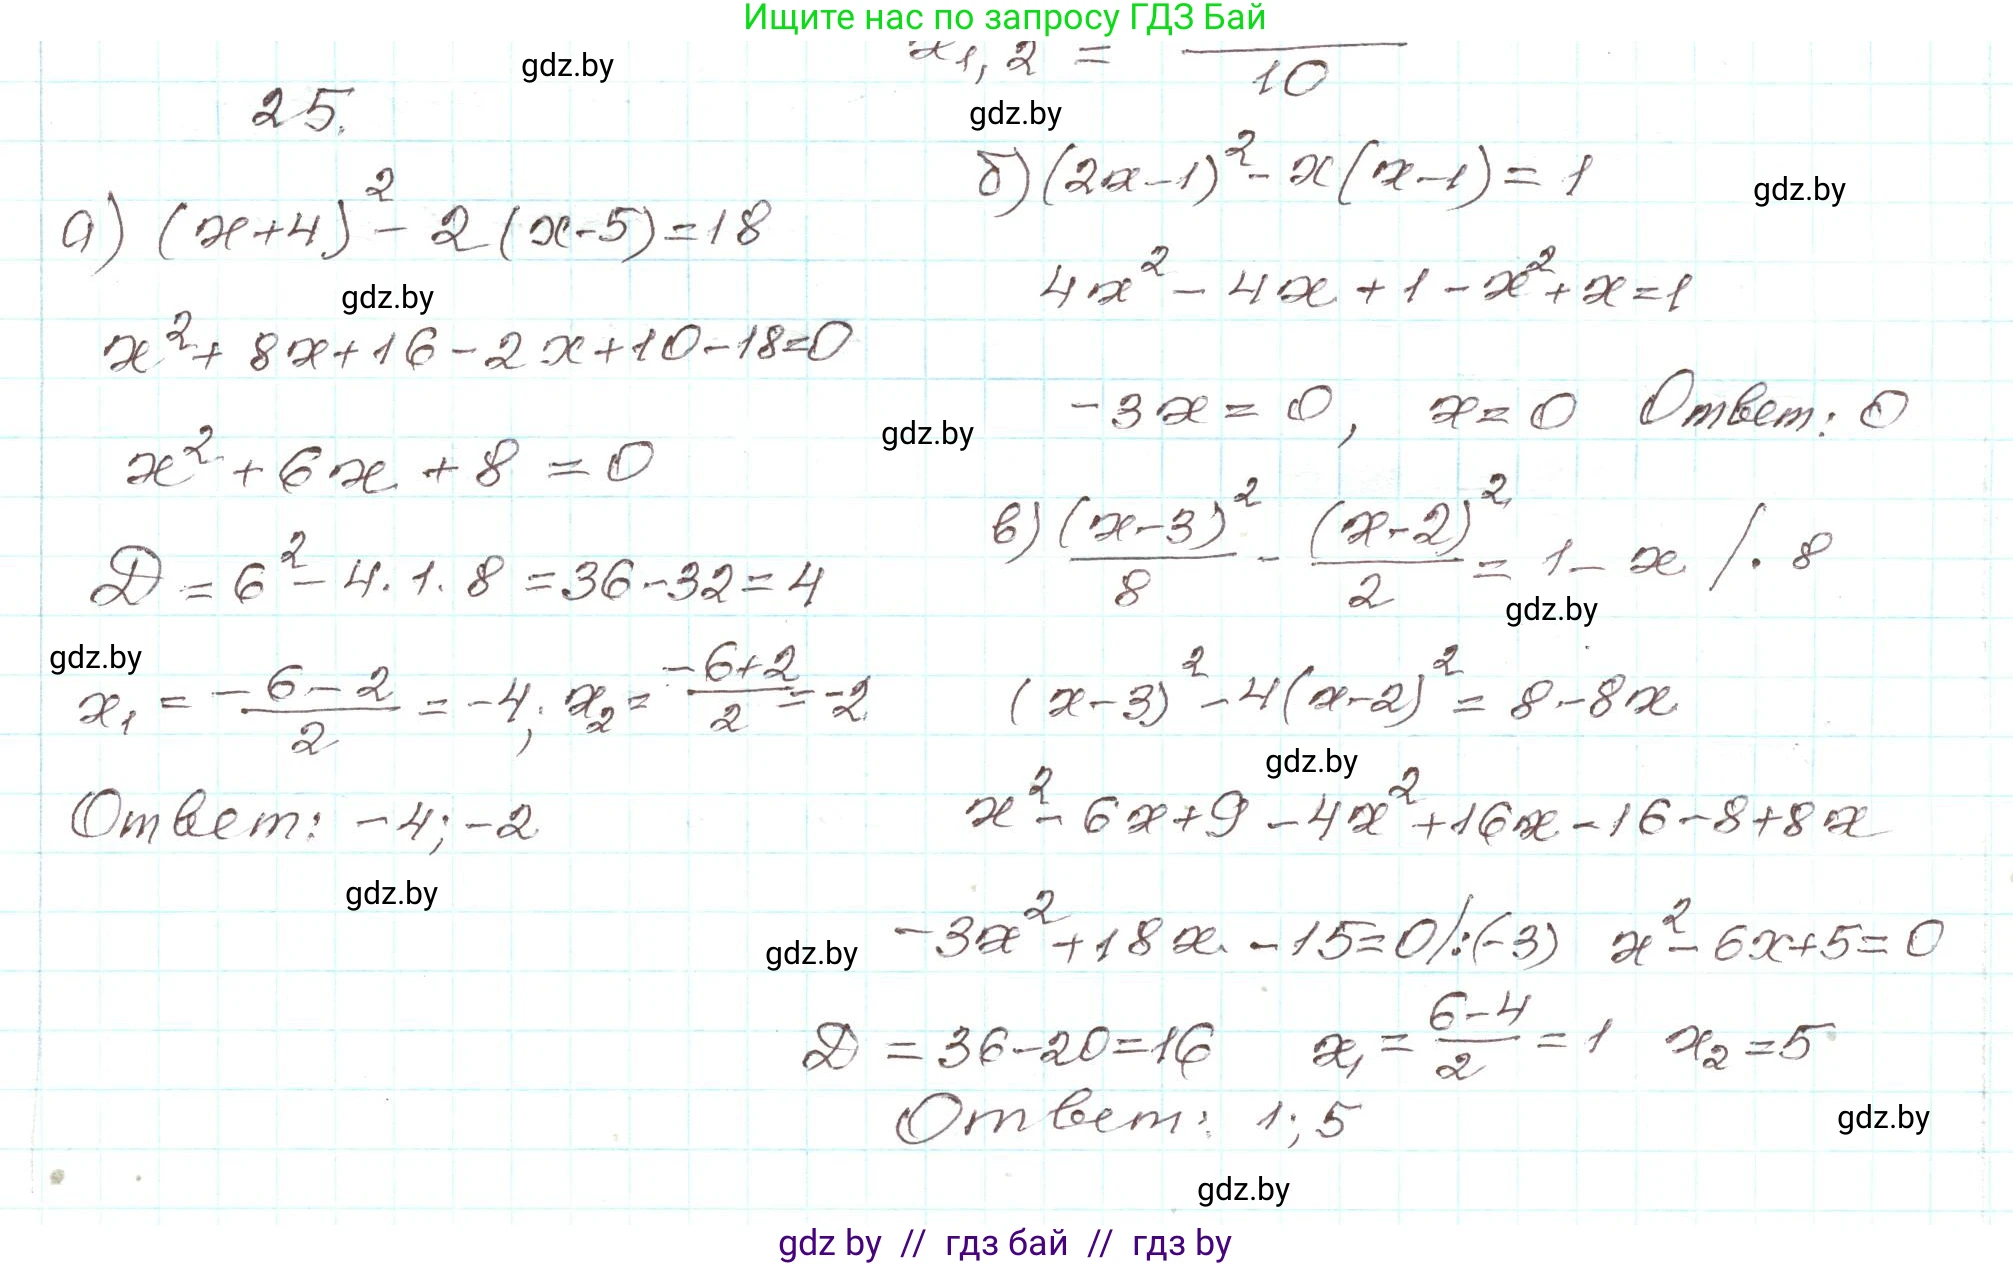 Ищите нас по запросу ГДЗ Бай
gdz.by
25.
а) (x+4)² - 2(x-5)=18
gdz.by
x² + 8x+16-2x+10-18=0
x² + 6x + 8 = 0
D = 6² - 4·1·8 = 36-32=4
gdz.by
x₁ = (-6-2)/2 = -4; x₂ = (-6+2)/2 = -2
Ответ: -4; -2
gdz.by
x₁,₂ = /10
gdz.by
б) (2x-1)² - x(x-1) = 1
gdz.by
4x² - 4x + 1 - x² + x = 1
-3x = 0, x=0 Ответ: 0
gdz.by
в) (x-3)²/8 - (x-2)²/2 = 1 - x /·8
gdz.by
(x-3)² - 4(x-2)² = 8-8x
gdz.by
x² - 6x+9-4x²+16x-16-8+8x
-3x²+18x-15=0/:(-3) x²-6x+5=0
gdz.by
D = 36-20=16 x₁ = (6-4)/2 = 1 x₂=5
Ответ: 1; 5
gdz.by
gdz.by
gdz by // гдз бай // гдз by